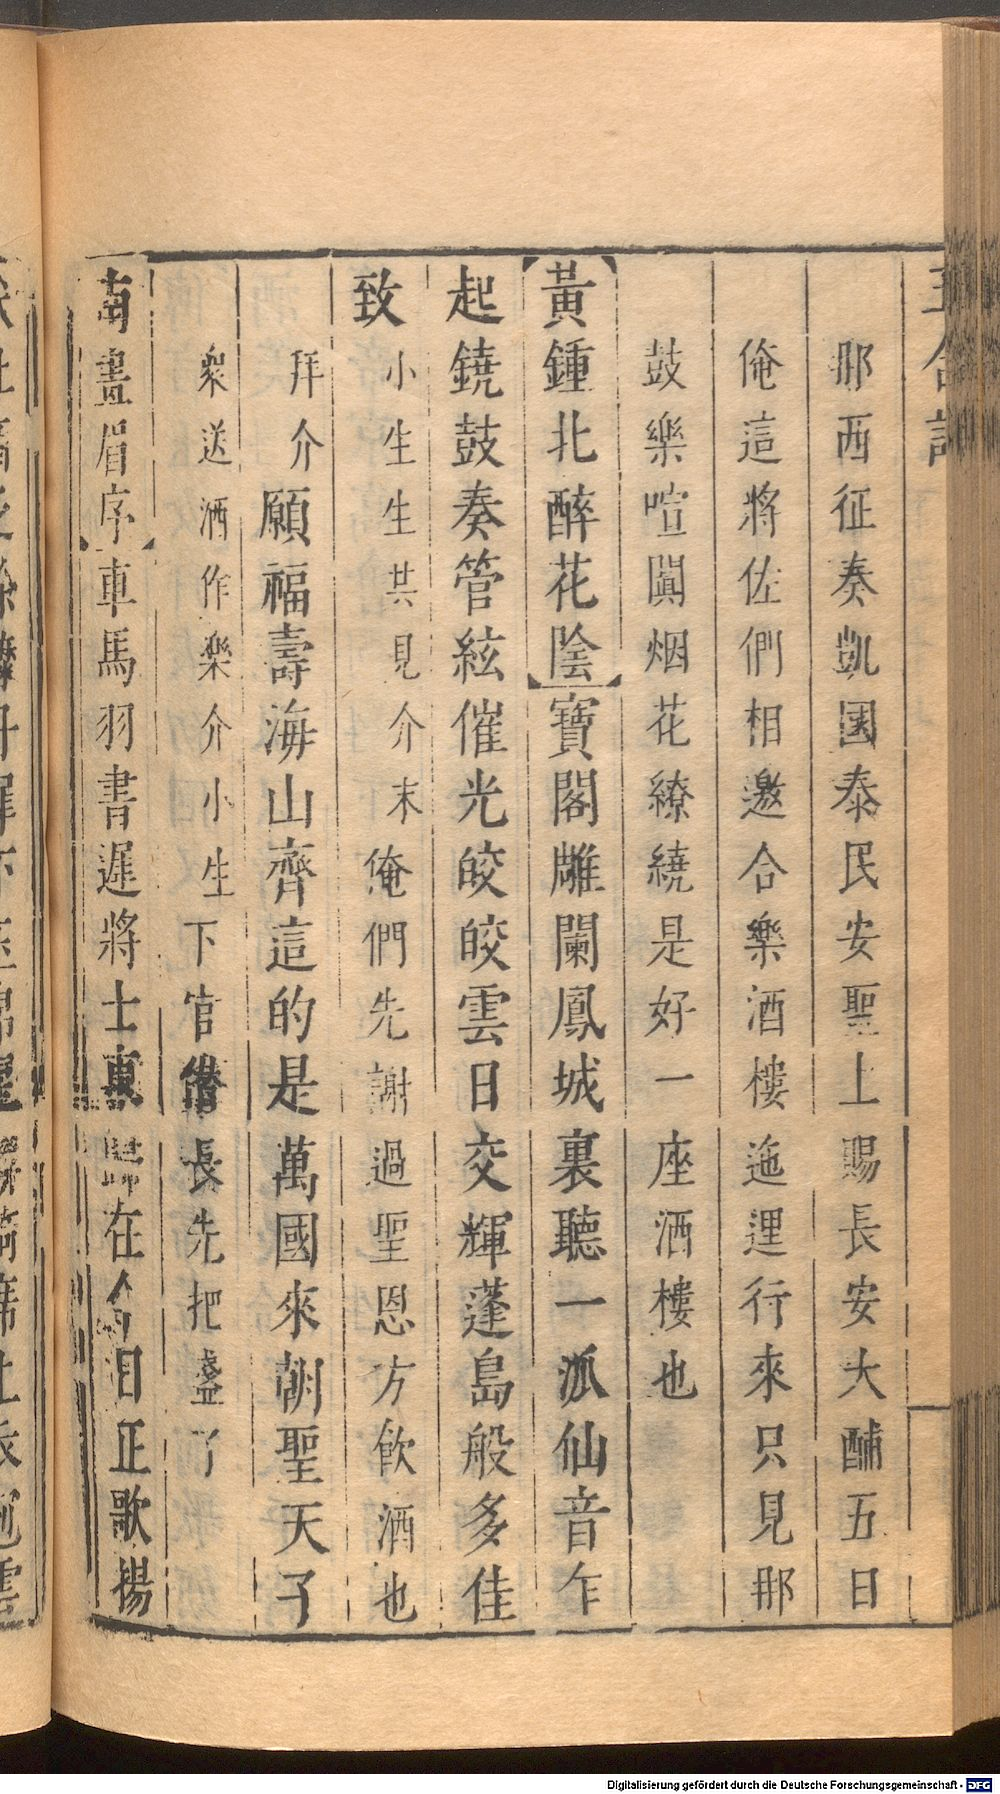 那西征奏凱國泰民安聖上賜長安大酺五日
俺這將佐們相邀合樂酒樓迤逞行來只見那
鼓樂喧闐烟花繚繞是好一座洒樓也
黃鍾北醉花陰寶閣雕闌鳳城裏聽一派仙音乍
起鐃鼓奏管絃催光皎皎雲日交輝蓬島般多佳
致小生生共見介末俺們先謝過聖恩方飮酒也
拜介願福壽海山齊這的是萬國來朝聖天子
衆送洒作樂介小生下官僭長先把盞了
南畫眉序車馬羽書遲將士東歸在今日正歌揚
Digitalisierung gefördert durch die Deutsche Forschungsgemeinschaft - DFG